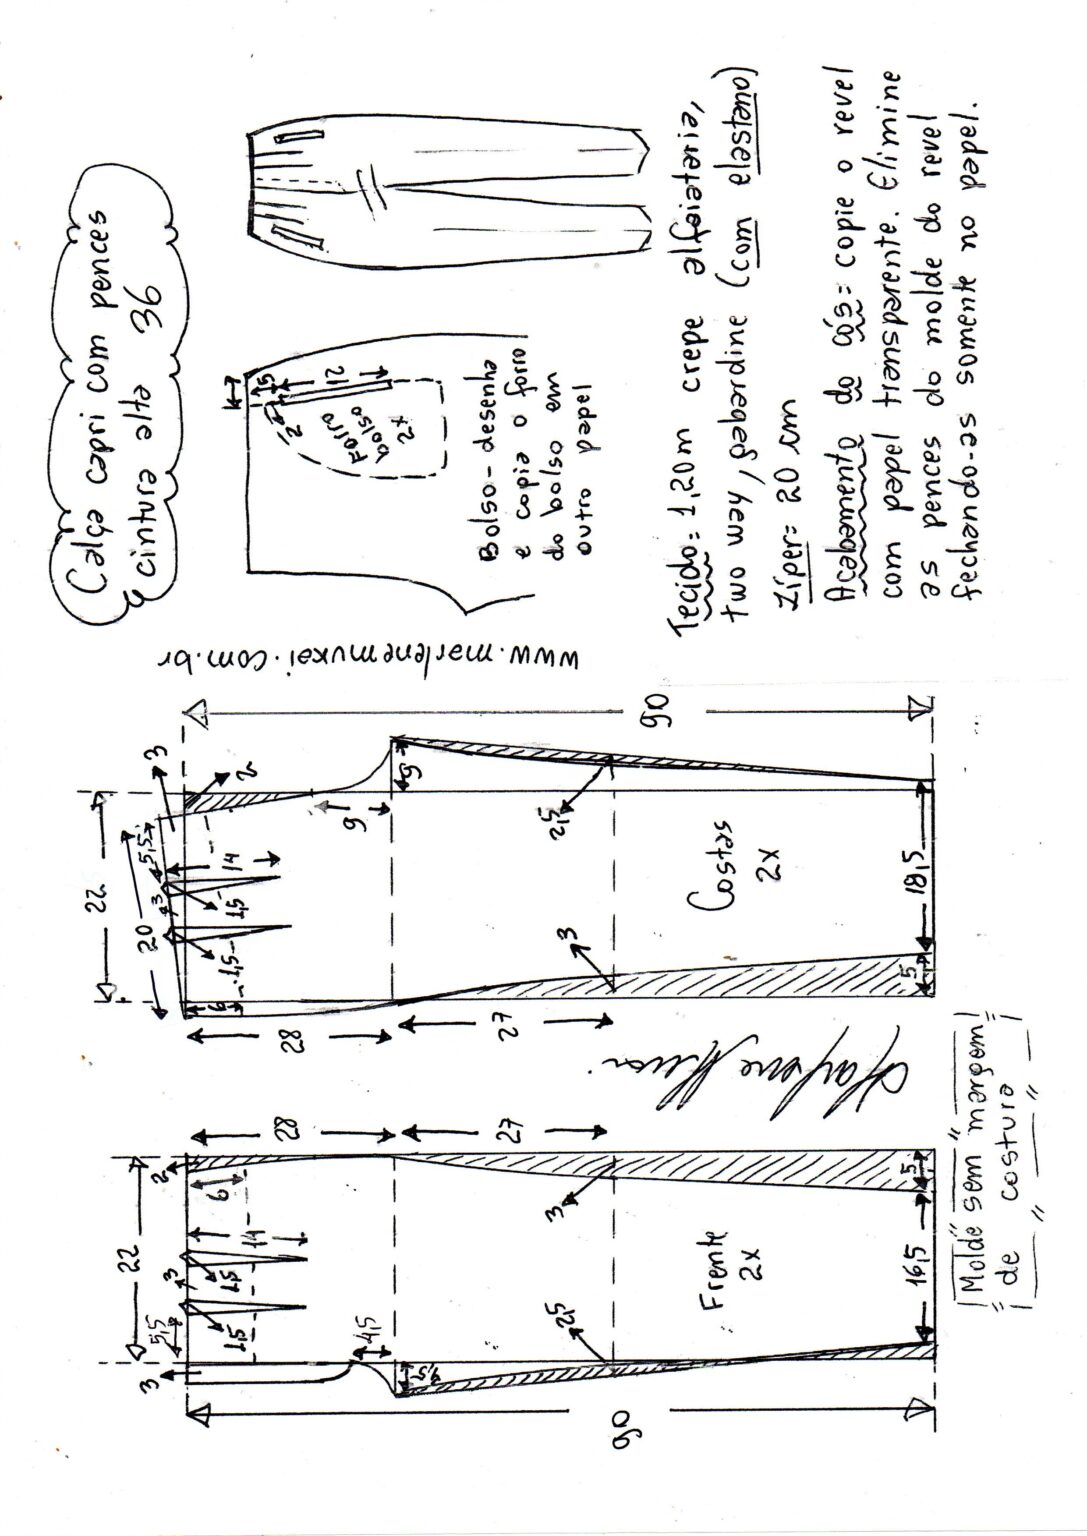 Calça capri com pences
cintura alta 36
5
12
2
Forro
bolso
2x
Bolso-desenha
e copia o forro
do bolso em
outro papel
Tecido: 1,20m crepe alfaiataria,
two way, gabardine (com elastano)
Zíper= 20 cm
Acabamento do cós= copie o revel
com papel transparente. Elimine
as pences do molde do revel
fechando-as somente no papel.
www.marlenemukai.com.br
22
20
3
2
5,5
3
14
1,5
1,5
6
9
9
28
27
2,5
3
Costas
2x
18,5
5
90
22
28
27
2
6
3
14
1,5
1,5
5,5
3
4,5
3,5
2,5
3
Frente
2x
16,5
5
90
Molde sem margem
de costura